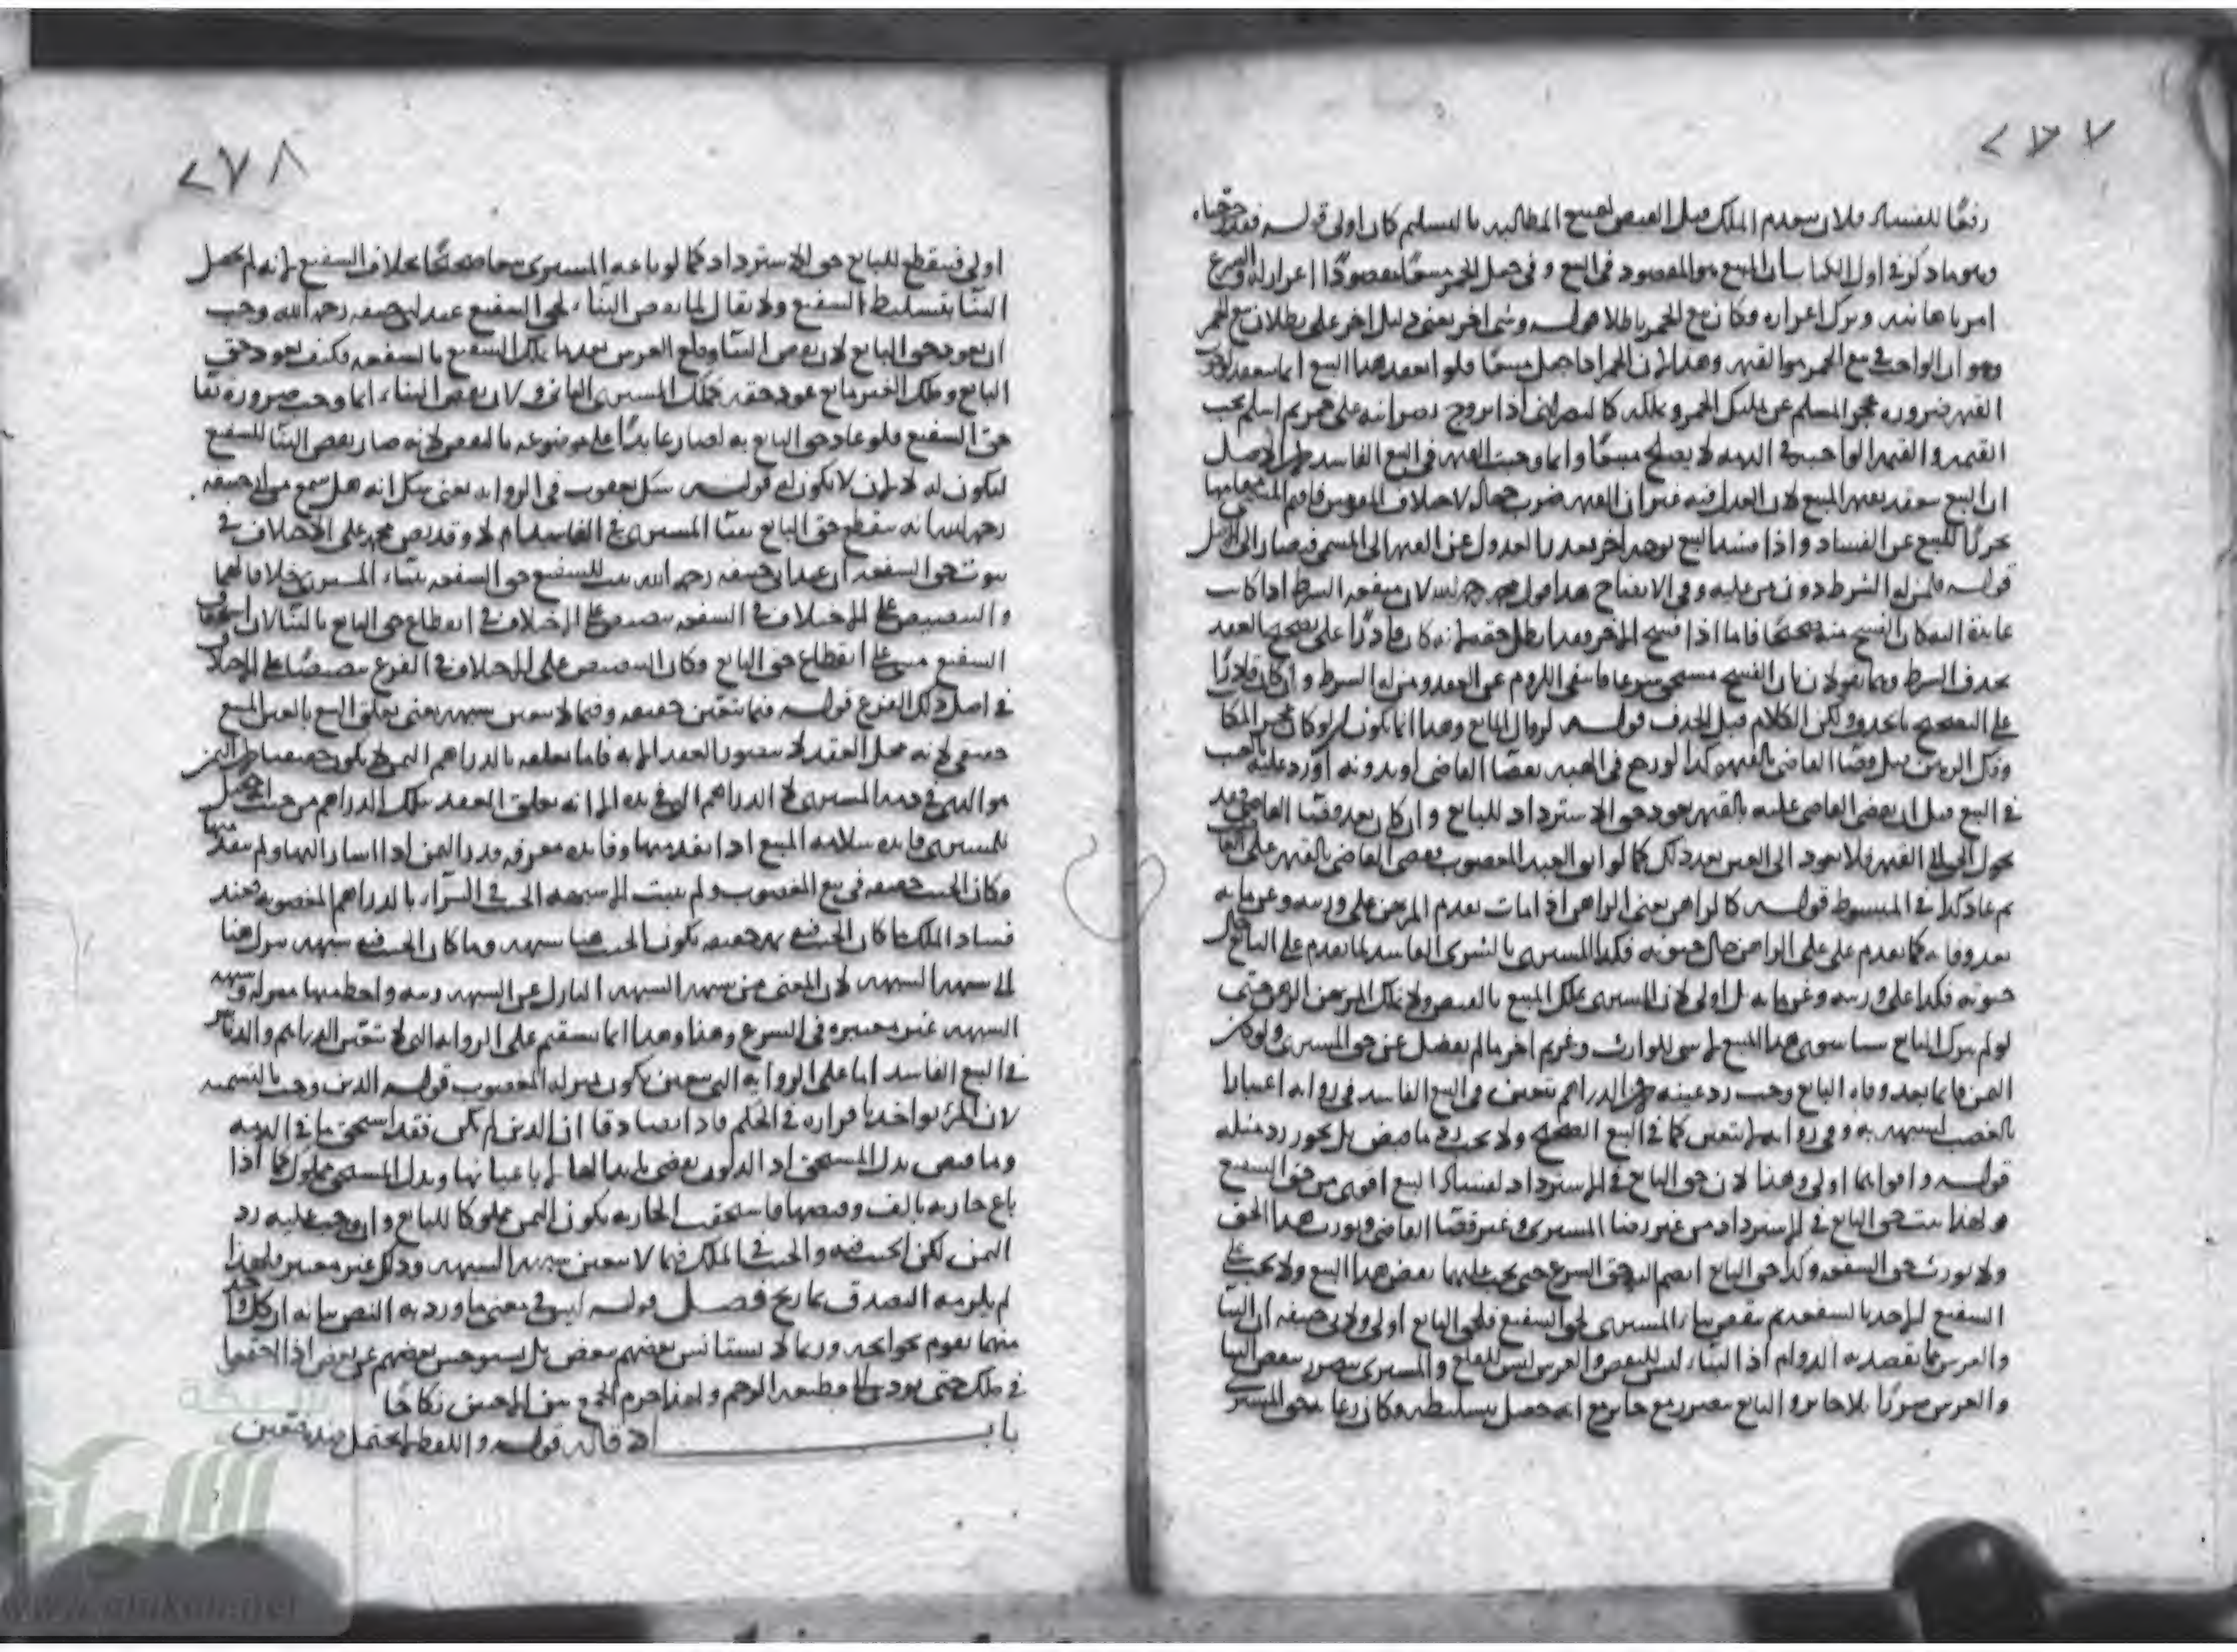 ٢٧٧
رفعًا للفساد فلان بعدم الملك قبل القبض لقبح المطالبة بالتسليم كان اولى قوله فقد خرجناه
وهو ما ذكر في اول الكتاب ان المبيع هو المقصود في البيع وفي جعل الخمر مبيعًا مقصودًا اعزاز له والشرع
امر باهانته وترك اعزازه فكان بيع الخمر باطلا قوله وشى اخر يعنى دليل اخر على بطلان بيع الخمر
وهو ان الواجب في بيع الخمر هو القيمة وهذا لان الخمر اذا جعل مبيعًا فلو انعقد هذا البيع انما ينعقد
القيمة ضرورة عجز المسلم عن تمليك الخمر وتملكه كالنصرانى اذا تزوج نصرانية على خمر ثم اسلم يجب
القيمة والقيمة الواجبة في الذمة لا يصلح مبيعًا وانما وجبت القيمة في البيع الفاسد لان الاصل
ان البيع ينعقد بقيمة المبيع لان العدل فيه غير ان القيمة ضرب جهالة لاختلاف المقومين فاقيم المسمى مقامها
تحرزًا للبيع عن الفساد واذا فسد البيع بوجه اخر تعذر العدول عن القيمة الى المسمى فيصار الى الاصل
قوله فلمن له الشرط دون من عليه وفى الايضاح هذا قول محمد رحمه الله لان منفعة الشرط اذا كانت
عايدة اليه كان الفسخ منه صحيحًا فاما اذا فسخ الاخر فقد ابطل حقه لانه كان قادرًا على تصحيح العقد
بحذف الشرط وهما يقولان بان الفسخ مستحق شرعا فانتفى اللزوم عن العقد ومن له الشرط وان كان قادرًا
على التصحيح بالحذف ولكن الكلام قبل الحذف قوله لزوال المانع وهذا انما يكون لو كان عجز المكاتب
وفك الرهن قبل قضا القاضى بالقيمة وكذا لو رجع في الهبة بقضا القاضى او بدونه او رد عليه بالعيب
في البيع قبل ان يقضى القاضى عليه بالقيمة يعود حق الاسترداد للبايع وان كان بعد قضا القاضى فقد
تحول الحق الى القيمة فلا يعود الى العين بعد ذلك كما لو ابق العبد المغصوب فقضى القاضى بالقيمة على
ثم عاد كذا في المبسوط قوله كالراهن يعنى الراهن اذا مات تقدم المرتهن على ورثته وغرمايه
بعد وفاته كما تقدم على الراهن حال حيوته فكذا المشترى بالشرى الفاسد لما تقدم على البايع حال
حيوته فكذا على ورثته وغرمايه بل اولى لان المشترى يملك المبيع بالقبض ولا يملك المرتهن الرهن حتى
لو لم يترك البايع شيا سوى هذا المبيع لا شى للوارث وغريم اخر ما لم يفضل عن حق المشترى ولو كان
الثمن قايما بعد وفاة البايع وجب رد عينه لان الدراهم تتعين في البيع الفاسد في رواية اعتبارا
بالغصب لشبهه به وفى رواية لا تتعين كما في البيع الصحيح ولا يجب رد ما قبض بل يجوز رد مثله
قوله واقواهما اولى وهنا لان حق البايع في الاسترداد لفساد البيع اقوى من حق الشفيع
ولهذا يثبت حق البايع في الاسترداد من غير رضا المشترى وغير قضا القاضى ويورث هذا الحق
ولا يورث حق الشفعة وكذا حق البايع انضم اليه حق الشرع حتى يجب عليهما نقض هذا البيع ولا يجب على
الشفيع الاخذ بالشفعة ثم ينقض بناء المشترى لحق الشفيع فلحق البايع اولى ولابى حنيفة ان البنا
والغرس مما يقصد به الدوام اذ البناء ليس للنقض والغرس ليس للقلع والمشترى يتضرر بنقض البنا
والغرس ضررًا بلا جابر والبايع يتضرر مع جابر مع انه حصل بتسليطه فكان رعاية حق المشترى
٢٧٨
اولى فينقطع للبايع حق الاسترداد كما لو باعه المشترى بيعا صحيحًا بخلاف الشفيع لانه لم يحصل
البنا بتسليط الشفيع ولا يقال لما نقض البناء لحق الشفيع عند ابى حنيفة رحمه الله وجب
ان يعود حق البايع لان بنقض البنا وقلع الغرس بعدها يملك الشفيع بالشفعة فكيف يعود حق
البايع وملك الغير مانع عود حقه كملك المشترى الثانى ولان نقض البناء انما وجب ضرورة بقا
حق الشفيع فلو عاد حق البايع به لصار عايدًا على موضوعه بالنقض لانه صار نقض البنا للشفيع
ليكون له لا لان لا يكون له قوله شك يعقوب في الرواية يعنى شك انه هل سمع من ابى حنيفة
رحمه الله انه ينقطع حق البايع ببنا المشترى في الفاسد ام لا وقد نص محمد على الاختلاف في
ثبوت حق الشفعة ان عند ابى حنيفة رحمه الله يثبت للشفيع حق الشفعة ببناء المشترى خلافا لهما
والتنصيص على الاختلاف في الشفعة تنصيص على الاختلاف في انقطاع حق البايع بالبنا لان استحقاق
الشفيع مبنى على انقطاع حق البايع فكان التنصيص على الاختلاف في الفرع تنصيصًا على الاختلاف
في اصل ذلك الفرع قوله فيما يتعين حقيقة وفيما لا يتعين شبهة يعنى تعلق البيع بالعين المبيع
حقيقى لانه محل العقد لا يتصور العقد الا به فاما تعلقه بالدراهم الثمن لا يكون حقيقيا لان الثمن
هو الدين في ذمة المشترى لا الدراهم التى في يده الا انه تعلق العقد بتلك الدراهم من حيث انه حصل
للمشترى فايدة سلامة المبيع اذا نقد منها وفايدة معرفة قدر الثمن اذا اشار اليها ولم ينقد منها
فكان الخبث حقيقة في بيع المغصوب ولم يثبت الا شبهة الخبث في الشراء بالدراهم المغصوبة فعند
فساد الملك ما كان الخبث فيه ثمه حقيقة يكون الخبث هنا شبهة وما كان الخبث فيه شبهة ينزل هنا
الى شبهة الشبهة لان المعنى من شبهة الشبهة النازل عن الشبهة رتبة والمنحط عنها منزلة وشبهة
الشبهة غير معتبرة في الشرع وهذا انما يستقيم على الرواية التى لا تتعين الدراهم والدنانير
في البيع الفاسد اما على الرواية التى تتعين يكون بمنزلة المغصوب قوله الدين وجب بالتسمية
لان المرء يواخذ باقراره في الحكم فاذا تصادقا ان الدين لم يكن فقد استحق ما في الذمة
وما قبض بدل المستحق اذ الديون يقضى بامثالها لا باعيانها وبدل المستحق مملوك كما اذا
باع جارية بالف وقبضها فاستحقت الجارية يكون الثمن مملوكا للبايع وان وجب عليه رد
الثمن لكن الخبث فيه والخبث في الملك فيما لا يتعين شبهة الشبهة وذلك غير معتبر فلهذا
لم يلزمه التصدق بما ربح فصل قوله ليس في معنى ما ورد به النص بيانه ان كل واحد
منهما يقوم بحوايجه وربما لا يستانس بعضهم ببعض بل يستوحش بعضهم عن بعض اذا اجتمعوا
في ملك حتى يؤدى الى قطيعة الرحم ولهذا حرم الجمع بين الاختين نكاحًا
باب الاقالة قوله واللفظ لا يحتمل ضده فتعين
www.alukah.net